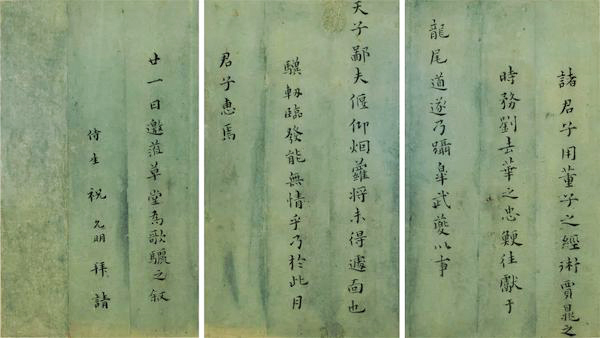 諸君子用董子之經術賈晁之
時務劉去華之忠鯁往獻于
龍尾道遂乃躡皋武夔以事
天子鄙夫偃仰烟蘿將未得遽面也
驥軔臨發能無情乎乃於此月
君子惠焉
廿一日邀蒞草堂爲歌驪之叙
侍生祝允明拜請